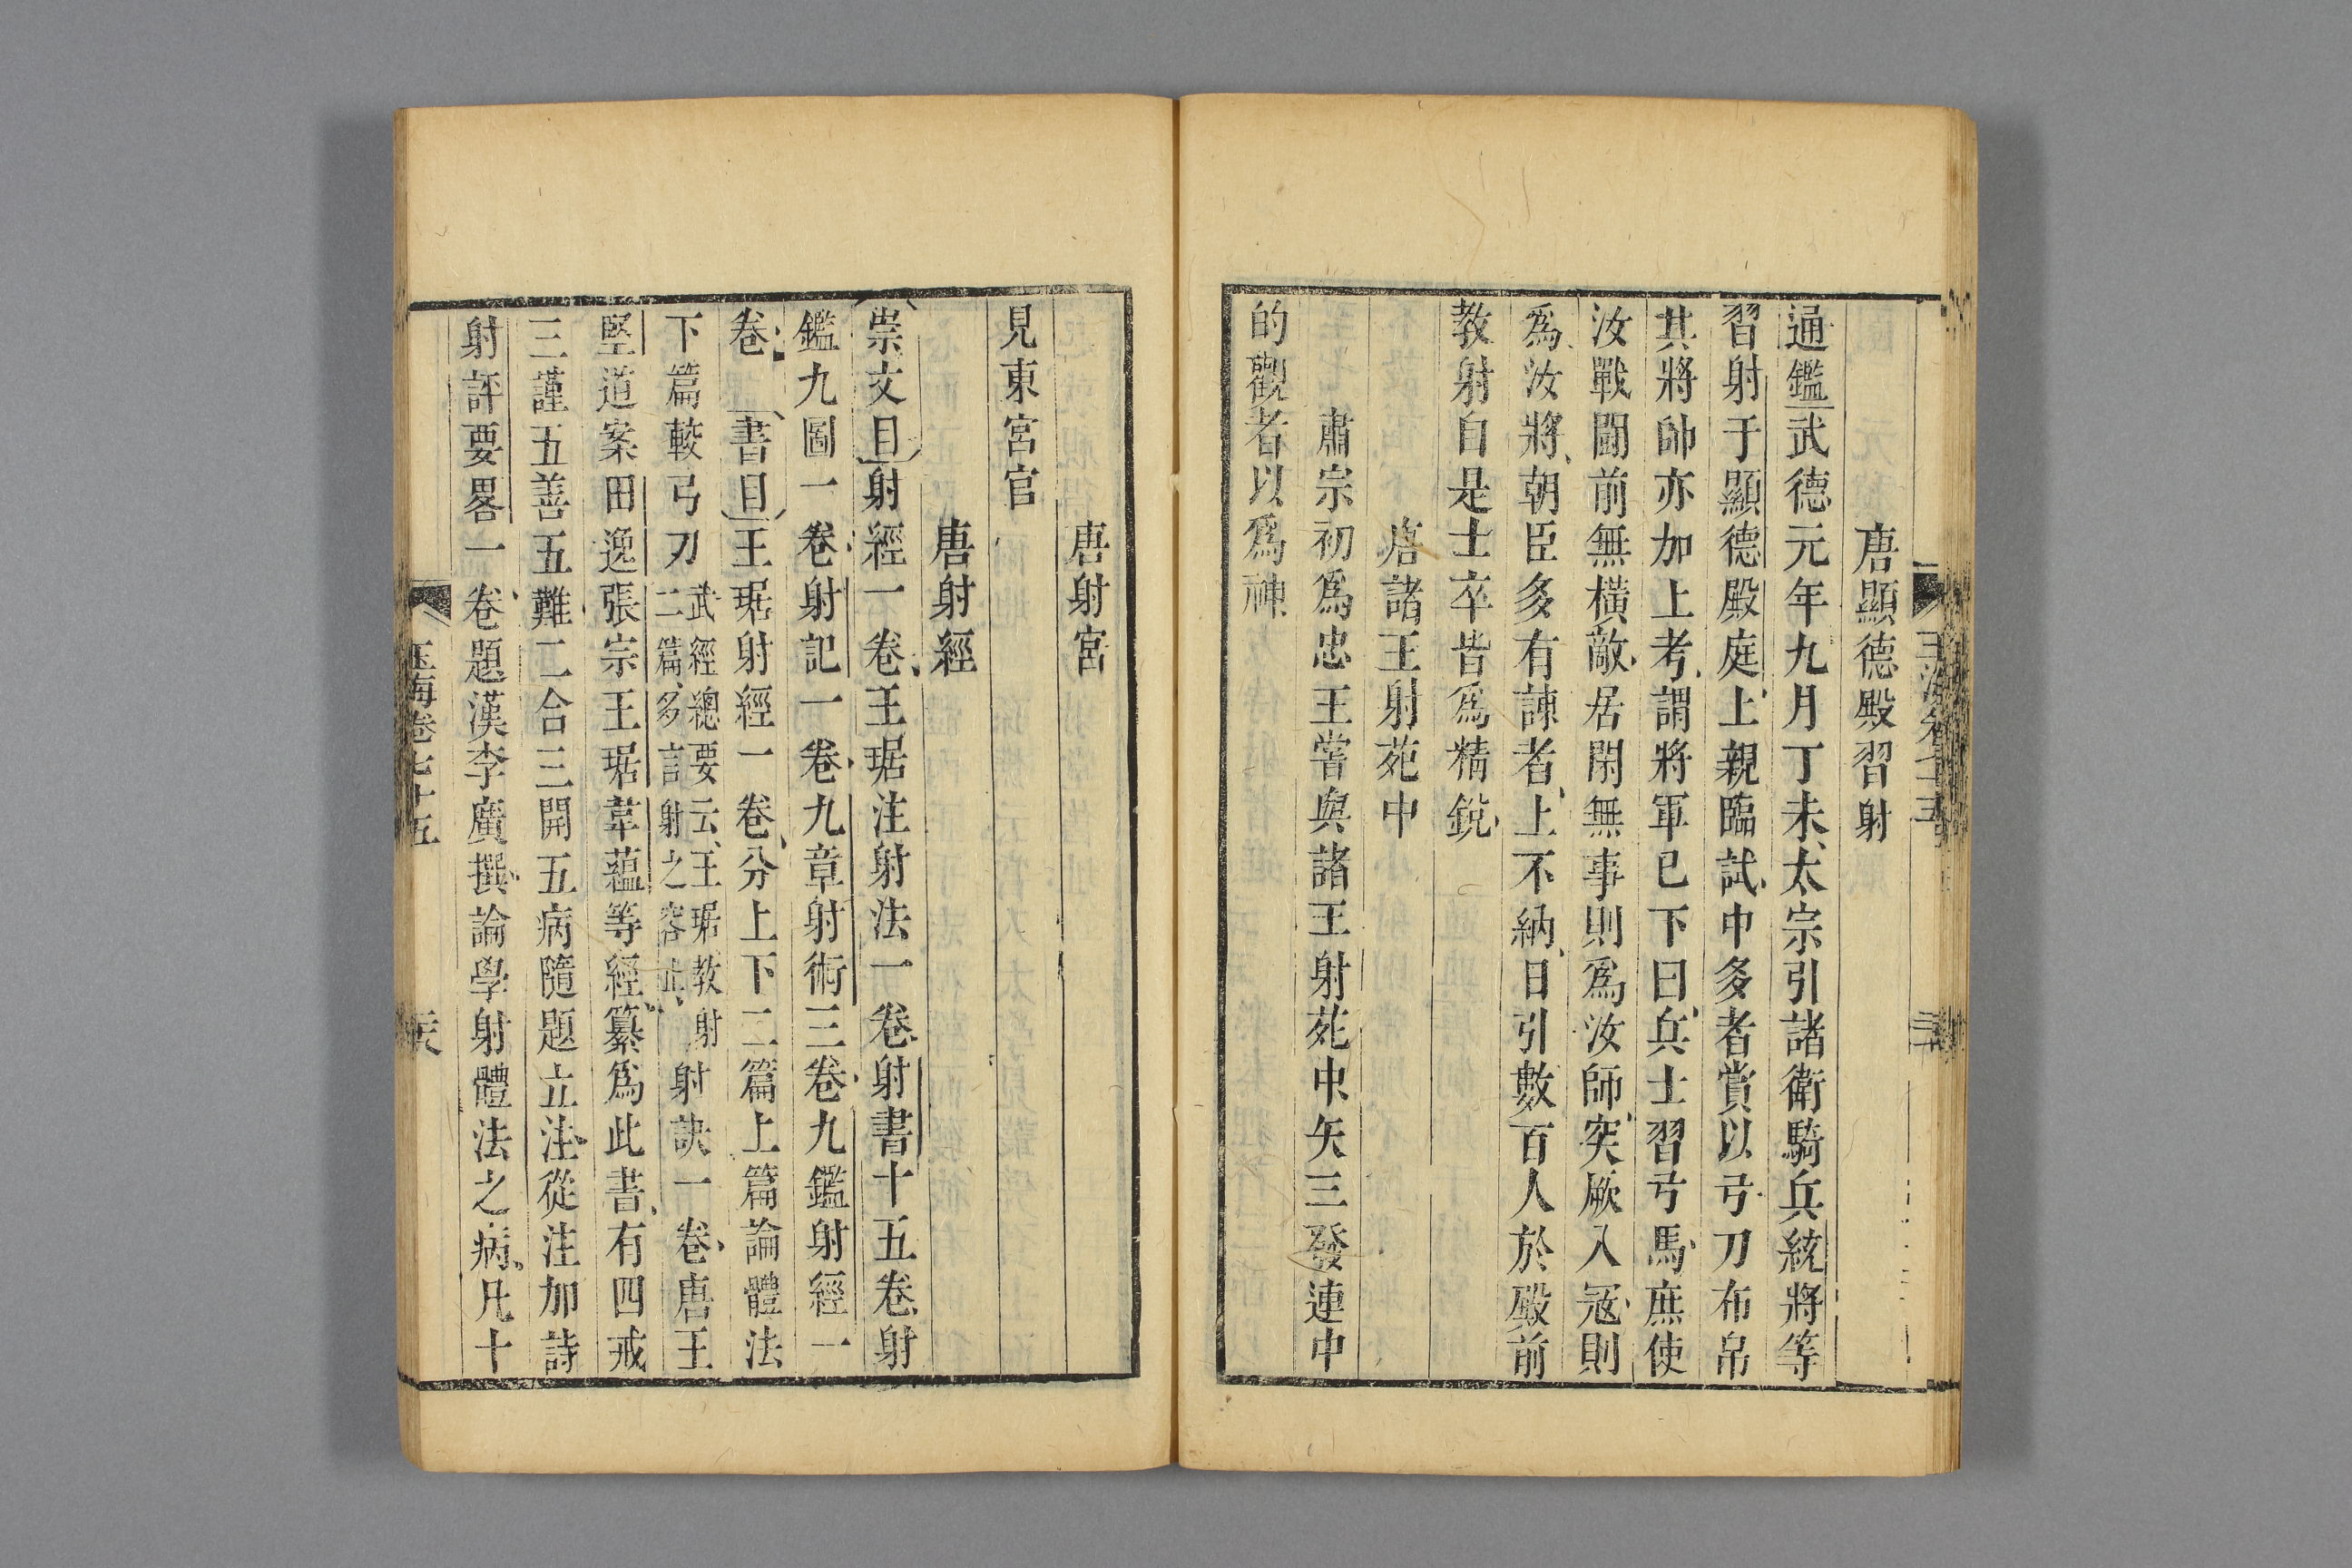 唐顯德殿習射
通鑑武德元年九月丁未太宗引諸衛騎兵統將等
習射于顯德殿庭上親臨試中多者賞以弓刀布帛
其將帥亦加上考謂將軍已下曰兵士習弓馬庶使
汝戰鬭前無橫敵居閑無事則爲汝師突厥入冦則
爲汝將朝臣多有諫者上不納日引數百人於殿前
教射自是士卒皆爲精銳
唐諸王射苑中
肅宗初爲忠王嘗與諸王射苑中矢三發連中
的觀者以爲神
唐射宮
見東宮官
唐射經
崇文目射經一卷王琚注射法一卷射書十五卷射
鑑九圖一卷射記一卷九章射術三卷九鑑射經一
卷 書目王琚射經一卷分上下二篇上篇論體法
下篇較弓刀武經總要云王琚教射二篇多言射之容止射訣一卷唐王
堅道案田逸張宗王琚韋蘊等經纂爲此書有四戒
三謹五善五難二合三開五病隨題立注從注加詩
射評要畧一卷題漢李廣撰論學射體法之病凡十
玉海卷七十五